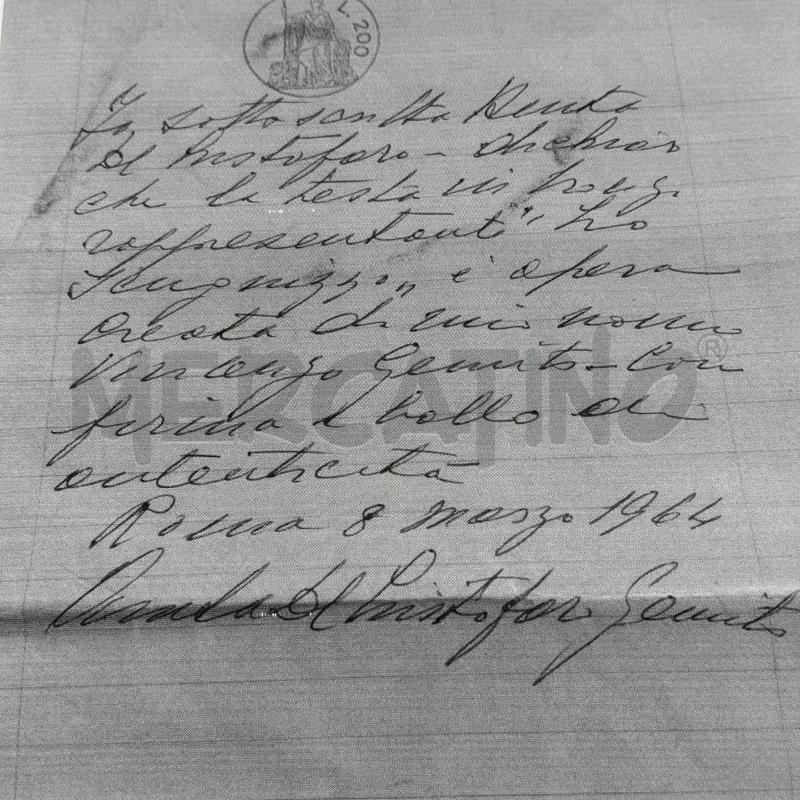 L. 200
Io sottoscritta
Di Cristofaro - dichiaro
che la testa in bronzo
rappresentant "Lo
Scugnizzo" è opera
creata di mio nonno
Vincenzo Gemito - con
firma e bollo di
autenticità
Roma 8 marzo 1964
Di Cristofaro Gemito
MERCATINO ®